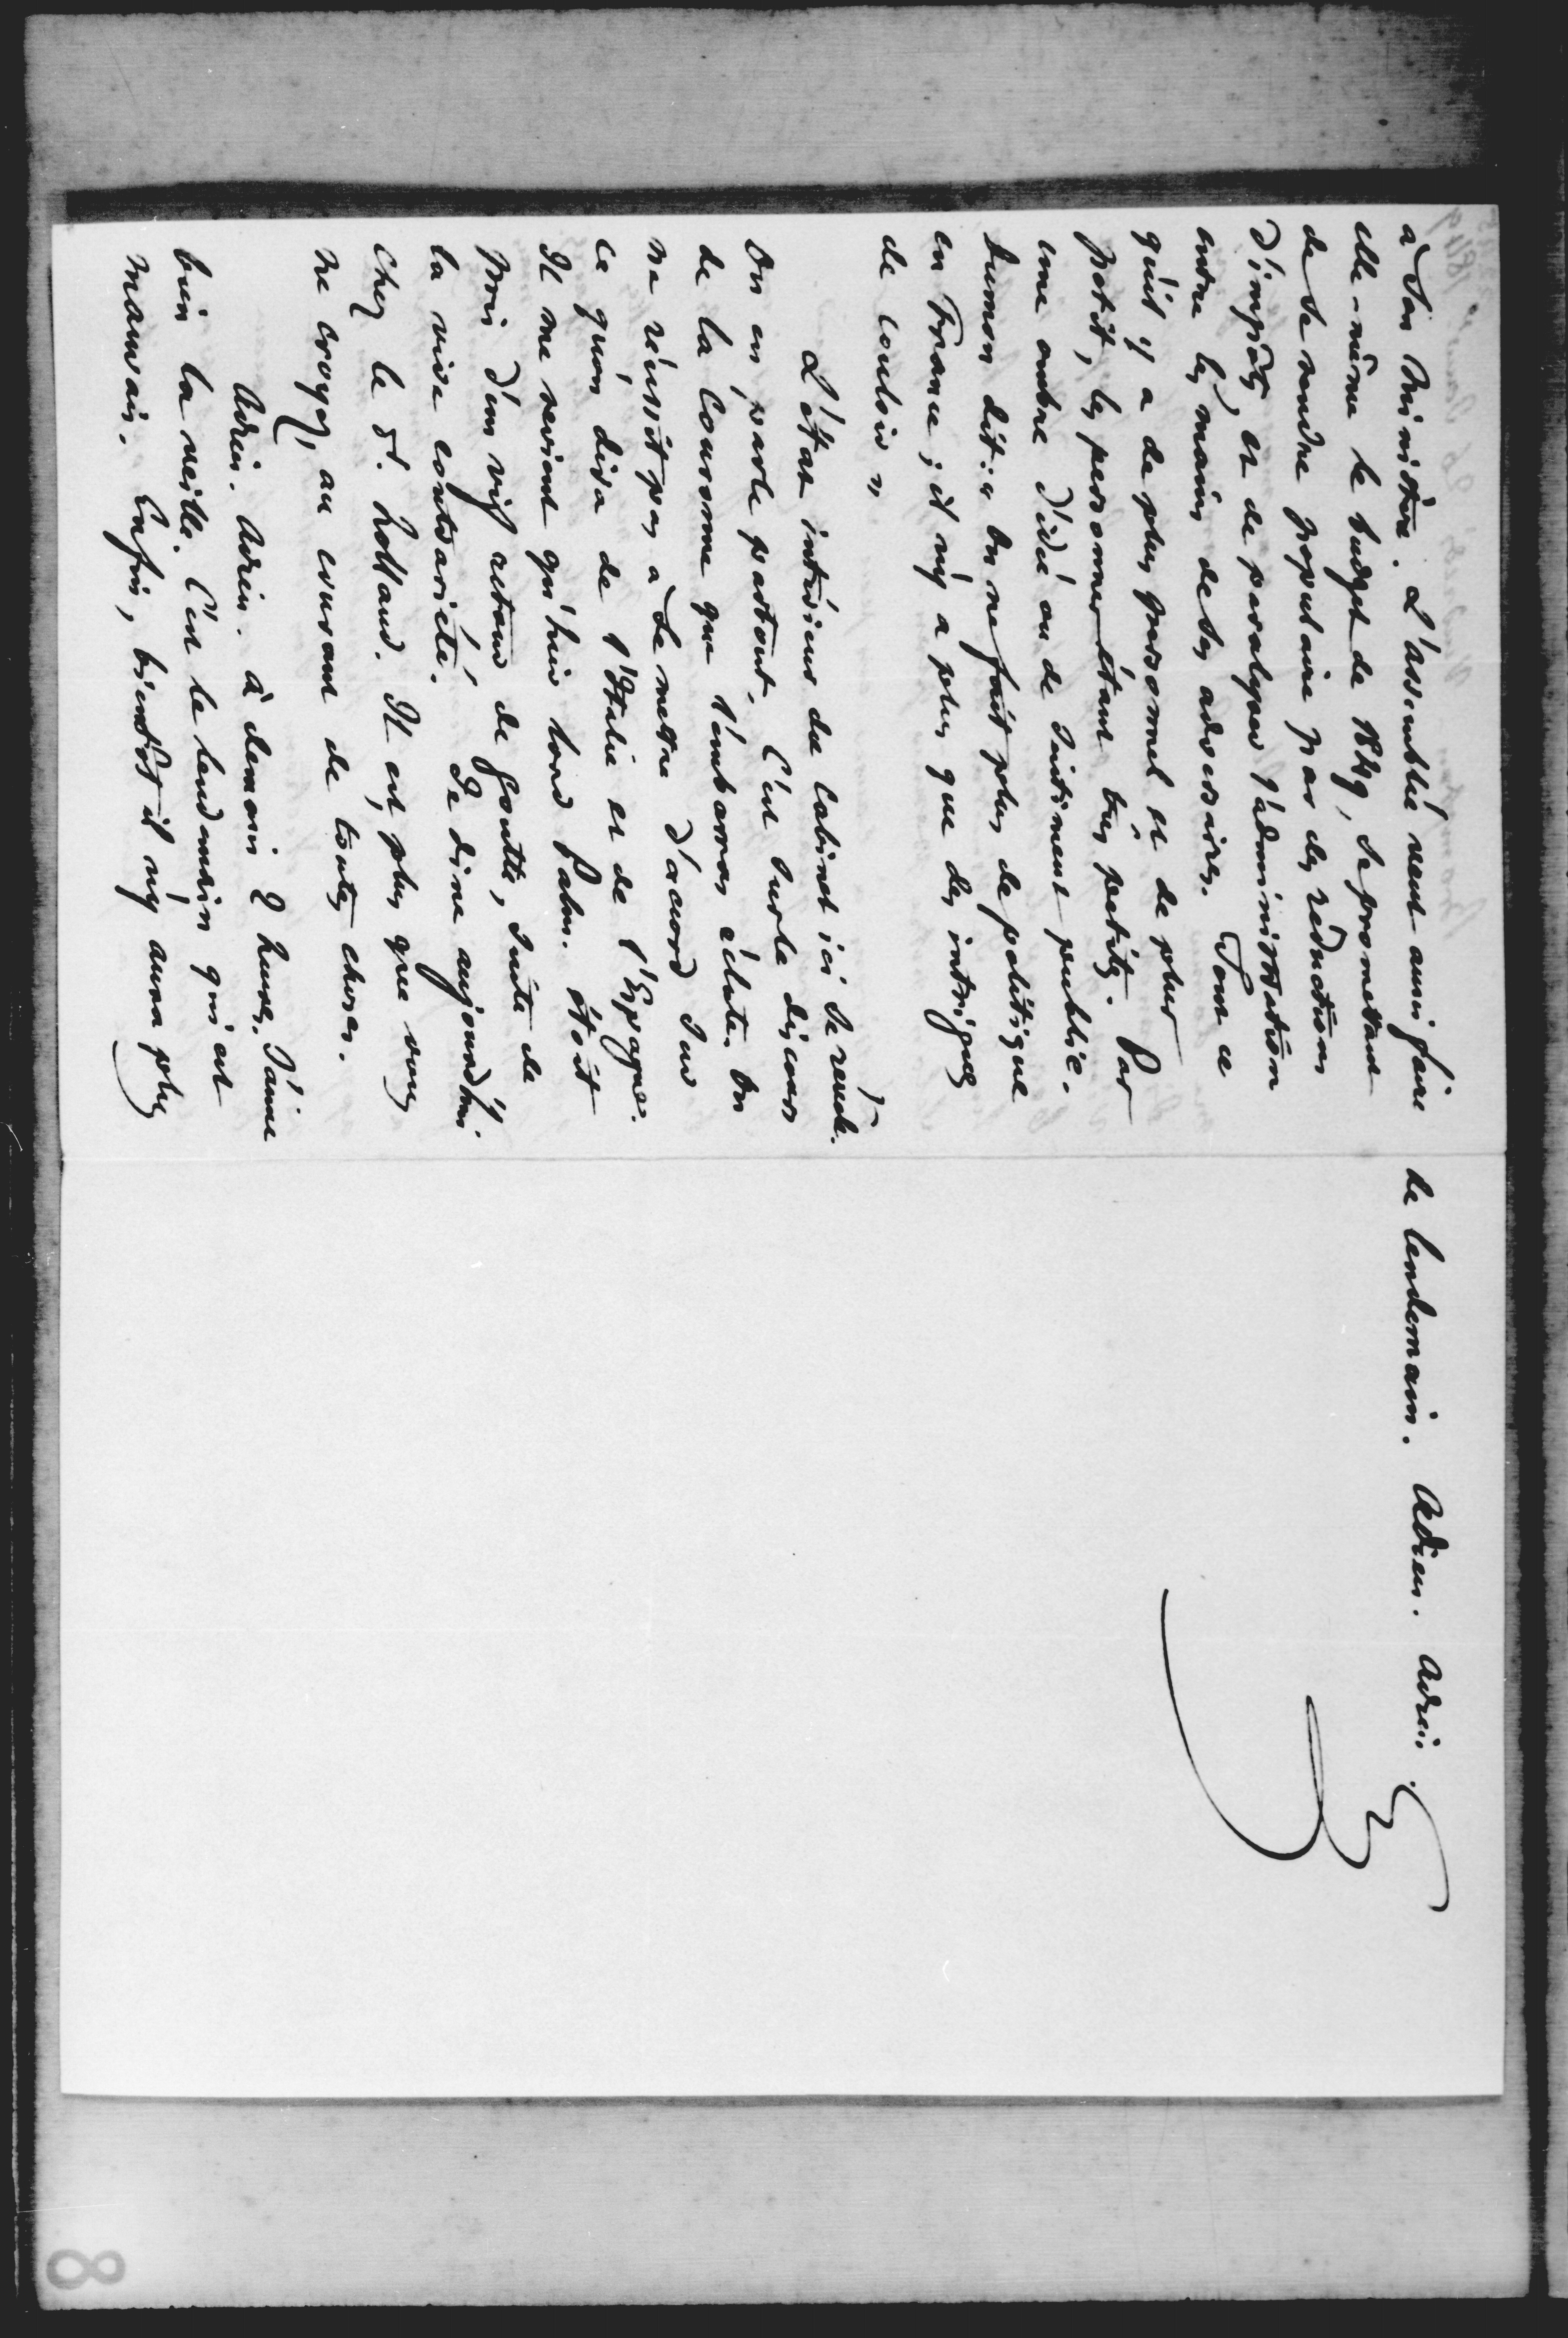 à son Ministère. L'assemblée veut aussi faire
elle-même le budget de 1849, se promettant
de se rendre populaire par des réductions
d'impôts, et de paralyser l'administration
entre les mains de ses adversaires. Tout ce
qu'il y a de plus personnel et de plus
petit, les personnes étant très petites. Pas
une ombre d'idée ou de sentiment public.
Dumon dit : « On ne fait plus de politique
en France ; il n'y a plus que des intrigues
de couloir »
L'état intérieur du Cabinet ici se
On en parle partout. C'est sur le discours
de la Couronne que l'embarras éclate. On
ne réussit pas à se mettre d'accord sur
ce qu'on dira de l'Italie et de l'Espagne.
Il me revient qu'hier lord Palm. étoit
pris d'un vif retour de goutte, suite de
la vive contrariété. Je dine aujourd'hui
chez le d. Holland. Il est plus que vous
ne croyez, au courant de toutes choses.
Adieu. Adieu. à demain 2 heures. J'aime
bien la veille. C'est le lendemain qui est
mauvais. Enfin, bientôt il n'y aura plus
de lendemain. Adieu. Adieu.
G
8